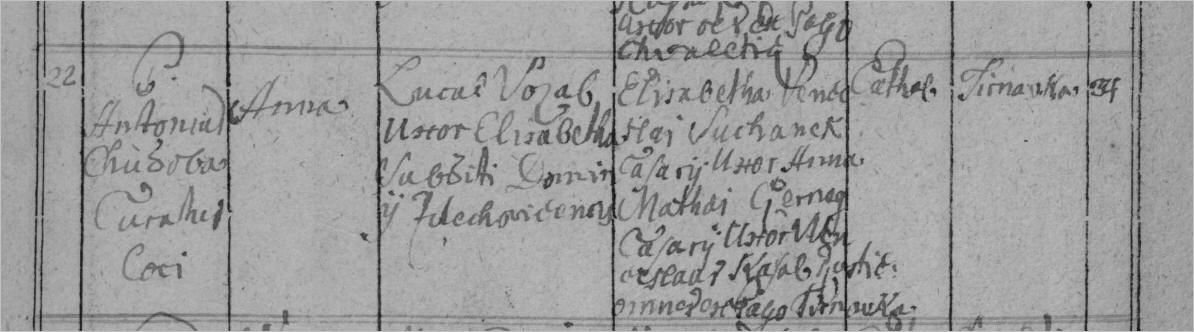 uxor ex Pago
Chvaletiy
22
P.
Antonius
Chuboba
Curatus
Loci
Anna
Lucas Vozab
Uxor Elisabetha
Subditi Domin
ij Zdechovicensis
Elisabetha Vence
slai Suchanek
Casarij Uxor Anna
Mathai Czerneg
Casarij Uxor
omnes ex Pago Tirnavka
Cathol.
Tirnavka